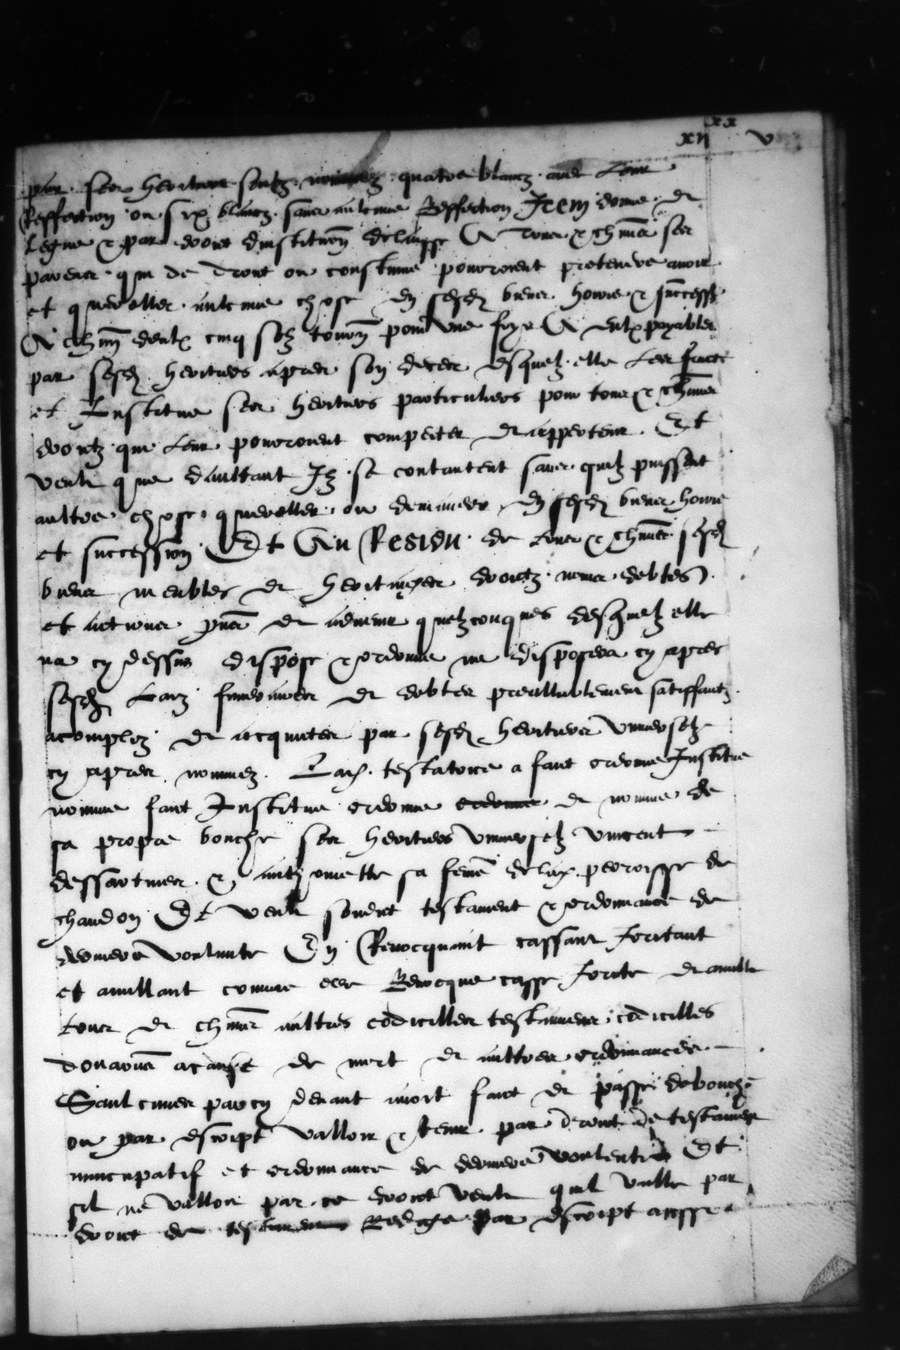 xx
xii v
par ses heritiers quatre blancz avec leur
Reffection ou six blancz sans aulcune Reffection Item donne et
legue et par droit dinstitution delaisse A tous et chun ses
parens qui de droit ou coustume pourroient pretendre avoir
et quereller aulcune chose En sesd biens hoirie et succession
A chun deulx cinq solz tourn pour une foys A eulx payables
par sesd heritiers apres son deces esquelz elle les faict
et Institue ses heritiers particuliers pour tous et chuns
droictz que leur pourroient competer et appertenir Et
veult que daultant Ilz se contantent sans quilz puissent
aultre chose quereller ou demander En sesd biens hoirie
et succession Et Au Residu de tous et chuns sesd
biens meubles et heritaiges droictz noms debtes
et actions pns et advenir quelzconques desquelz elle
na cy dessus dispose et ordonne ne disposera cy apres
sesd laiz funerailles et debtes preallablement satiffaictz
acompliz et acquictes par sesd heritiers universelz
cy apres nommez Lad testatrice a faict ordonne Institue
nomme faict Institue ordonne et nomme de
sa propre bouche ses heritiers universelz Vincent
dessartines et sa feme de lad perroisse de
chandon Et veult sondict testament et ordonnance de
derniere voulunte En Revocquant cassant Irritant
et anullant comme elle Revocque casse Irrite et anulle
tous et chuns aultres codicilles testamens codicilles
donations a cause de mort et aultres ordonnances
Saulcunes par cy devant avoit faict et passe de bouche
ou par escript valloir et tenir par droict de testament
nuncupatif et ordonnance de derniere voulente Et
sil ne valloit par ce droict veult quil vaille par
droict de testament Redige par escript aussi